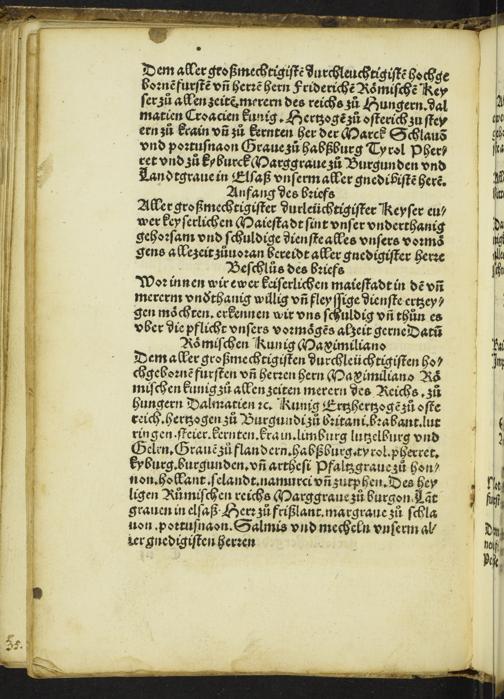 Dem aller großmechtigistē durchleuchtigistē hochge
bornē fursten vñ herrē hern Friderichē Römischē Key
ser zů allen zeitē, merern des reichs zů Hungern, dal
matien Croacien kunig. Hertzogē zů osterich zů stey
ern zů krain vñ zů kernten her der Marck Schlauō
vnd portusnaon Graue zů habßburg Tyrol Pher
ret vnd zů kyburck Marggraue zů Burgunden vnd
Landtgraue in Elsaß vnserm aller gnedibistē herē.
Anfang des briefs
Aller großmechtigister durleüchtigister Keyser eu/
wer keyserlichen Maiestadt sint vnser vnderthanig
gehorsam vnd schuldige dienste alles vnsers vormö
gens allezeit zůuoran bereidt aller gnedigister herre
Beschlüs des briefs
Wor innen wir ewer keiserlichen maiestadt in dē vñ
mererm vndthanig willig vñ fleyssige dienste ertzey/
gen möchten, erkennen wir vns schuldig vñ thün es
vber die pflicht vnsers vormögēs alzeit gerne Datū
Römischen Kunig Maximiliano
Dem aller großmechtigisten durchleüchtigisten ho/
chgebornē fursten vñ herren hern Maximiliano Rö
mischen kunig zů allen zeiten merern des Reichs. zů
hungern Dalmatien ꝛc. Kunig Ertzhertzogē zů oste
reich. hertzogen zů Burgundi zů britani. brabant. lut
ringen. steier. kernten. krain. limburg lutzelburg vnd
Gelrn. Grauē zů flandern. habßburg. tyrol. pherret.
kyburg. burgunden. vñ arthesi Pfaltzgraue zů hon/
non. hollant. selandt. namurci vñ zutphen. Des hey
ligen Römischen reichs Marggraue zů burgon. Lāt
grauen in elsaß. Herr zů frißlant. margraue zů schla
uon. portusnaon. Salmis vnd mecheln vnserm al/
ler gnedigisten herren
35.